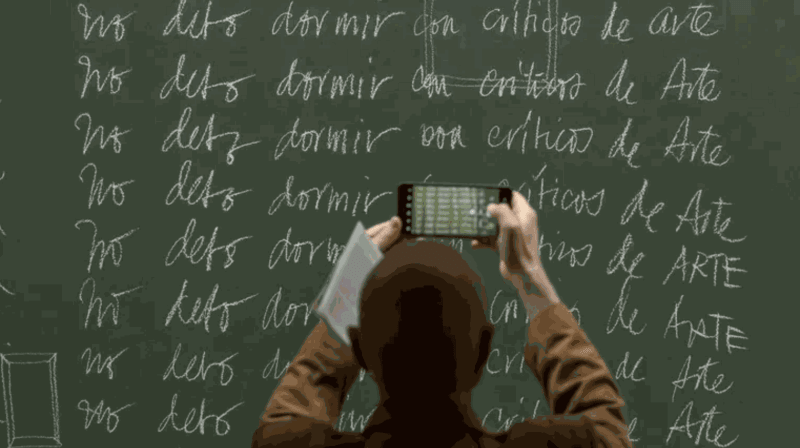 No debo dormir con críticos de arte
No debo dormir con críticos de Arte
No debo dormir con críticos de Arte
No debo dormir críticos de Arte
No debo dormir de ARTE
No debo de ARTE
no debo de Arte
no debo de Arte